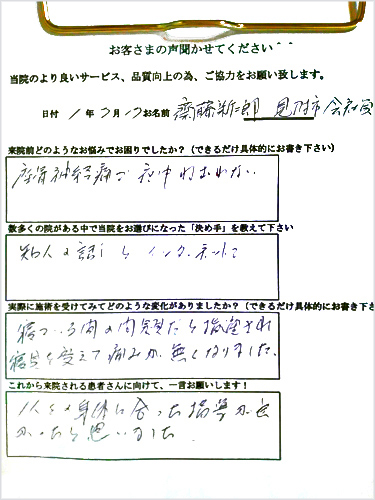 お客さまの声聞かせてください^^
当院のより良いサービス、品質向上の為、ご協力をお願い致します。
日付 1年 月1 お名前 齋藤 郎 見附市 会社員
来院前どのようなお悩みでお困りでしたか？（できるだけ具体的にお書き下さい）
座骨神経痛で夜中ねむれない
数多くの院がある中で当院をお選びになった「決め手」を教えて下さい
知人の話しとインターネットで
実際に施術を受けてみてどのような変化がありましたか？（できるだけ具体的にお書き下
寝ている間の問題だと指摘され
寝具を変えて痛みが無くなりました。
これから来院される患者さんに向けて、一言お願いします！
1人1人の身体に合った指導が良
かったと思いました